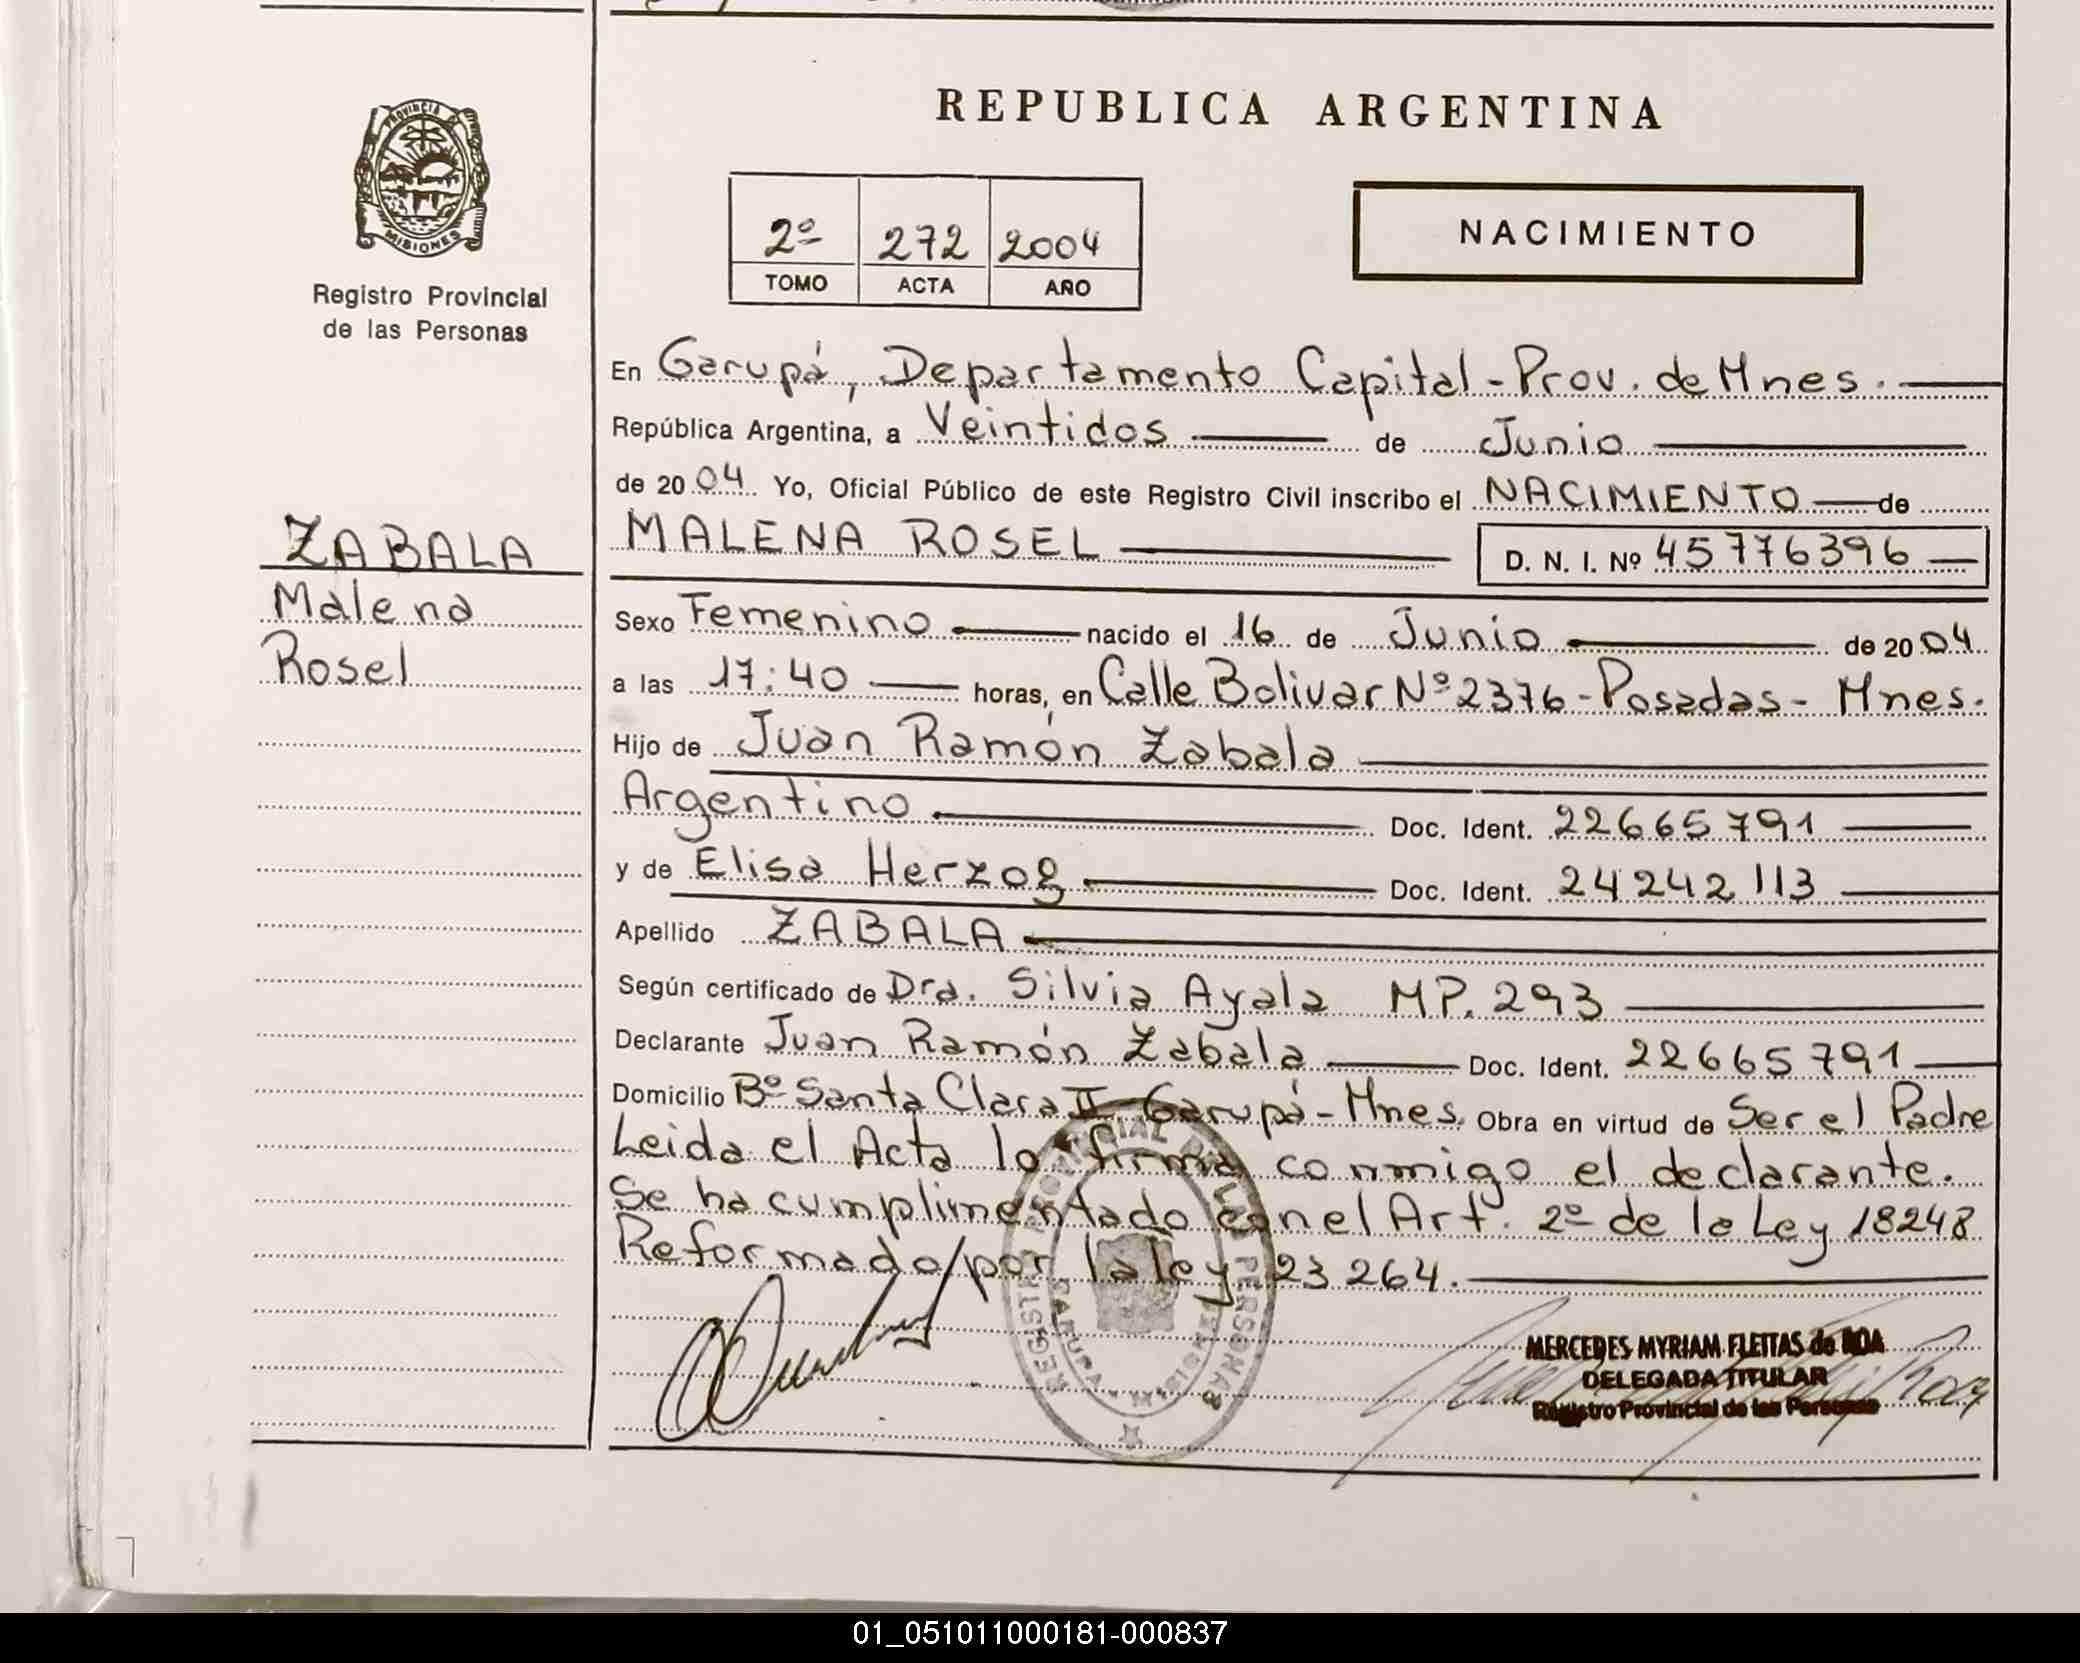 REPUBLICA ARGENTINA
PROVINCIA DE
MISIONES
Registro Provincial
de las Personas
2º 272 2004
TOMO ACTA AÑO
NACIMIENTO
En Garupá, Departamento Capital - Prov. de Mnes.
República Argentina, a Veintidos de Junio
de 2004 Yo, Oficial Público de este Registro Civil inscribo el NACIMIENTO de
ZABALA
Malena
Rosel
MALENA ROSEL D. N. I. Nº 45776396
Sexo Femenino nacido el 16 de Junio de 2004
a las 17:40 horas, en Calle Bolivar Nº 2376 - Posadas - Mnes.
Hijo de Juan Ramón Zabala
Argentino Doc. Ident. 22665791
y de Elisa Herzog Doc. Ident. 24242113
Apellido ZABALA
Según certificado de Dra. Silvia Ayala MP. 293
Declarante Juan Ramón Zabala Doc. Ident. 22665791
Domicilio Bº Santa Clara II Garupá - Mnes. Obra en virtud de Ser el Padre
Leida el Acta lo firma conmigo el declarante.
Se ha cumplimentado con el Art. 2º de la Ley 18248
Reformado por la ley 23264.
REGISTRO PROVINCIAL DE LAS PERSONAS
GARUPA MISIONES
MERCEDES MYRIAM FLEITAS de ROA
DELEGADA TITULAR
Registro Provincial de las Personas
01_051011000181-000837